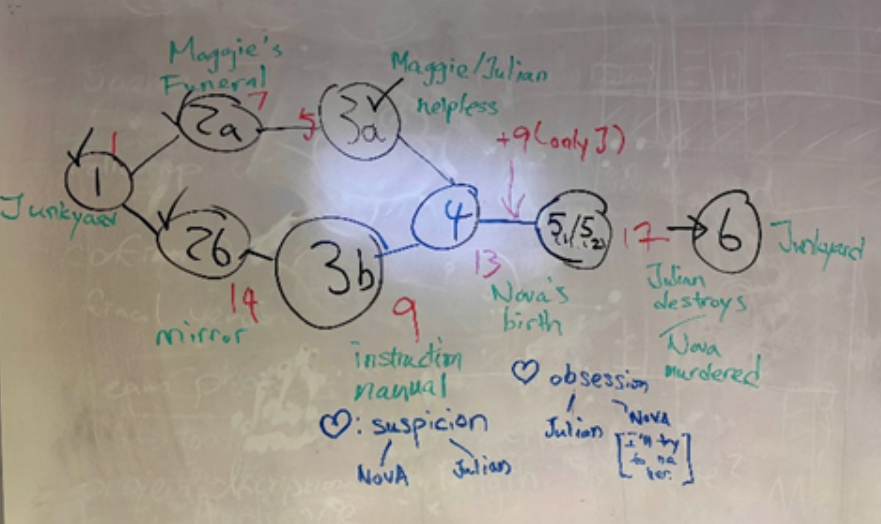 Maggie's
Funeral
7
2a
5
3a
Maggie/Julian
helpless
+9(only J)
1
1
Junkyard
2b
14
mirror
3b
9
instruction
manual
4
13
Nova's
birth
5.1/5.2
17
Julian
destroys
Nova
murdered
6
Junkyard
♡: suspicion
NOVA Julian
♡ obsession
Julian
NOVA
[I'll try
to
her.]